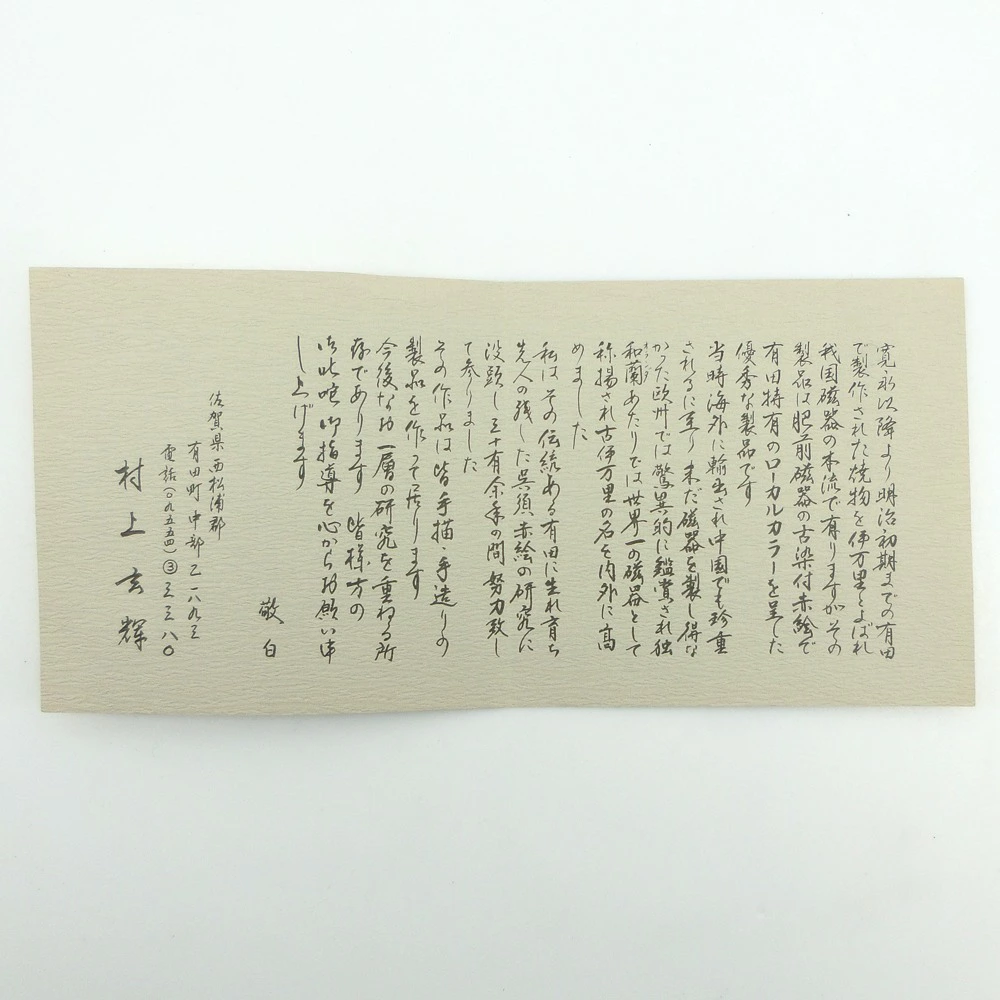 寛永以降より明治初期までの有田
で製作された焼物を伊万里とよばれ
我国磁器の本流で有りますがその
製品は肥前磁器の古染付赤絵で
有田特有のローカルカラーを呈した
優秀な製品です
当時海外に輸出され中国でも珍重
されるに至り未だ磁器を製し得な
かった欧州では驚異的に鑑賞され独
和蘭あたりでは世界一の磁器として
称揚され古伊万里の名を内外に高
めました
私はその伝統ある有田に生れ育ち
先人の残した呉須赤絵の研究に
没頭し三十有余年の間努力致し
て参りました
その作品は皆手描・手造りの
製品を作って居ります
今後なお一層の研究を重ねる所
存であります 皆様方の
御叱咤御指導を心からお願い申
し上げます
敬白
佐賀県西松浦郡
有田町中部乙一八九三
電話(〇九五五四)③三三八〇
村上玄輝